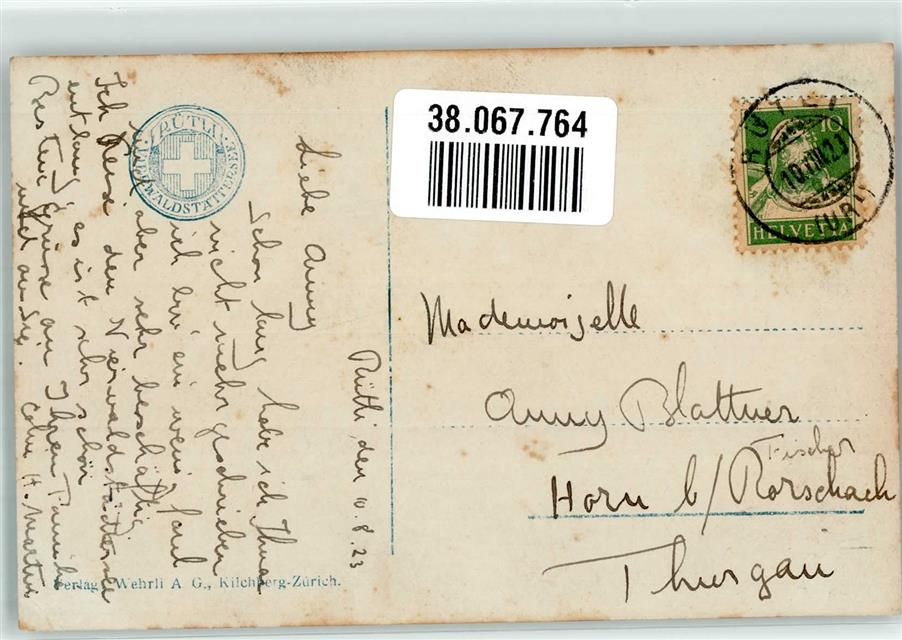 38.067.764
RÜTLI
10.VIII.23
(URI)
10
HELVETIA
RÜTLI
VIERWALDSTÄTTERSEE
Rütli, den 10.8.23
Liebe Anny
Schon lang habe ich Ihnen
nicht mehr geschrieben
ich bin ein wenig faul
aber sehr beschäftig
Ich den Vierwaldstättersee
entlang, es ist sehr schön
Besten Grüsse an Ihren Familie
und an Sie. H. Martin
Mademoiselle
Anny Blattner
Fischer
Horn b/ Rorschach
Thurgau
Verlag Wehrli A G., Kilchberg-Zürich.